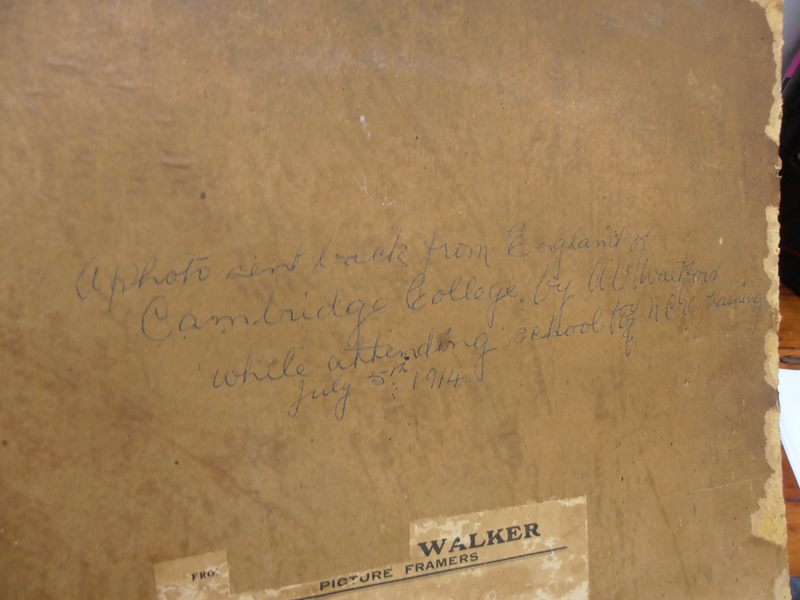 A photo sent back from England of
Cambridge College, by A.W. Watford
while attending school for N.C.O. training
July 5th 1914.
FRO
WALKER
PICTURE FRAMERS